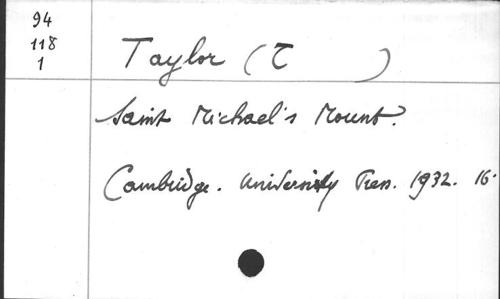 94
118
1
Taylor (T )
Saint Michael's Mount.
Cambridge. University Press. 1932. 16.